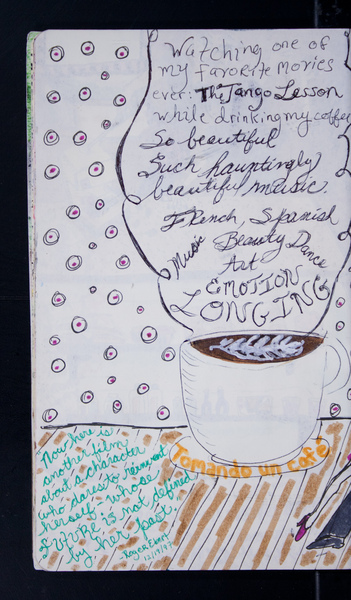 Watching one of
my favorite movies
ever: The Tango Lesson
while drinking my coffee
So beautiful
Such hauntingly
beautiful music.
French, Spanish
Music Beauty Dance
Art
EMOTION
LONGING
Tomando un café
Now here is
another film
about a character
who dares to reinvent
herself, whose
future is not defined
by her past.
-Roger Ebert
12/19/97